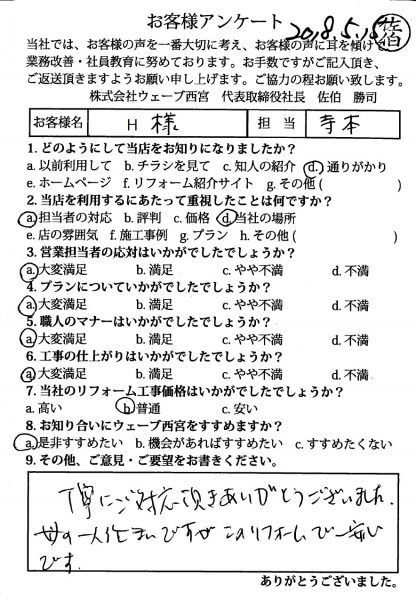 お客様アンケート 2018.5.15 皆
当社では、お客様の声を一番大切に考え、お客様の声に耳を傾けて
業務改善・社員教育に努めております。お手数ですがご記入頂き、
ご返送頂きますようお願い申し上げます。ご協力の程お願い致します。
株式会社ウェーブ西宮 代表取締役社長 佐伯 勝司
お客様名 H 様 担当 寺本
1. どのようにして当店をお知りになりましたか？
a. 以前利用して b. チラシを見て c. 知人の紹介 d. 通りがかり
e. ホームページ f. リフォーム紹介サイト g. その他 ( )
2. 当店を利用するにあたって重視したことは何ですか？
a. 担当者の対応 b. 評判 c. 価格 d. 当社の場所
e. 店の雰囲気 f. 施工事例 g. プラン h. その他 ( )
3. 営業担当者の応対はいかがでしたでしょうか？
a. 大変満足 b. 満足 c. やや不満 d. 不満
4. プランについていかがでしたでしょうか？
a. 大変満足 b. 満足 c. やや不満 d. 不満
5. 職人のマナーはいかがでしたでしょうか？
a. 大変満足 b. 満足 c. やや不満 d. 不満
6. 工事の仕上がりはいかがでしたでしょうか？
a. 大変満足 b. 満足 c. やや不満 d. 不満
7. 当社のリフォーム工事価格はいかがでしたでしょうか？
a. 高い b. 普通 c. 安い
8. お知り合いにウェーブ西宮をすすめますか？
a. 是非すすめたい b. 機会があればすすめたい c. すすめたくない
9. その他、ご意見・ご要望をお書きください。
丁寧にご対応頂きありがとうございました。
母の一人住まいですが このリフォームで一安心
です。
ありがとうございました。